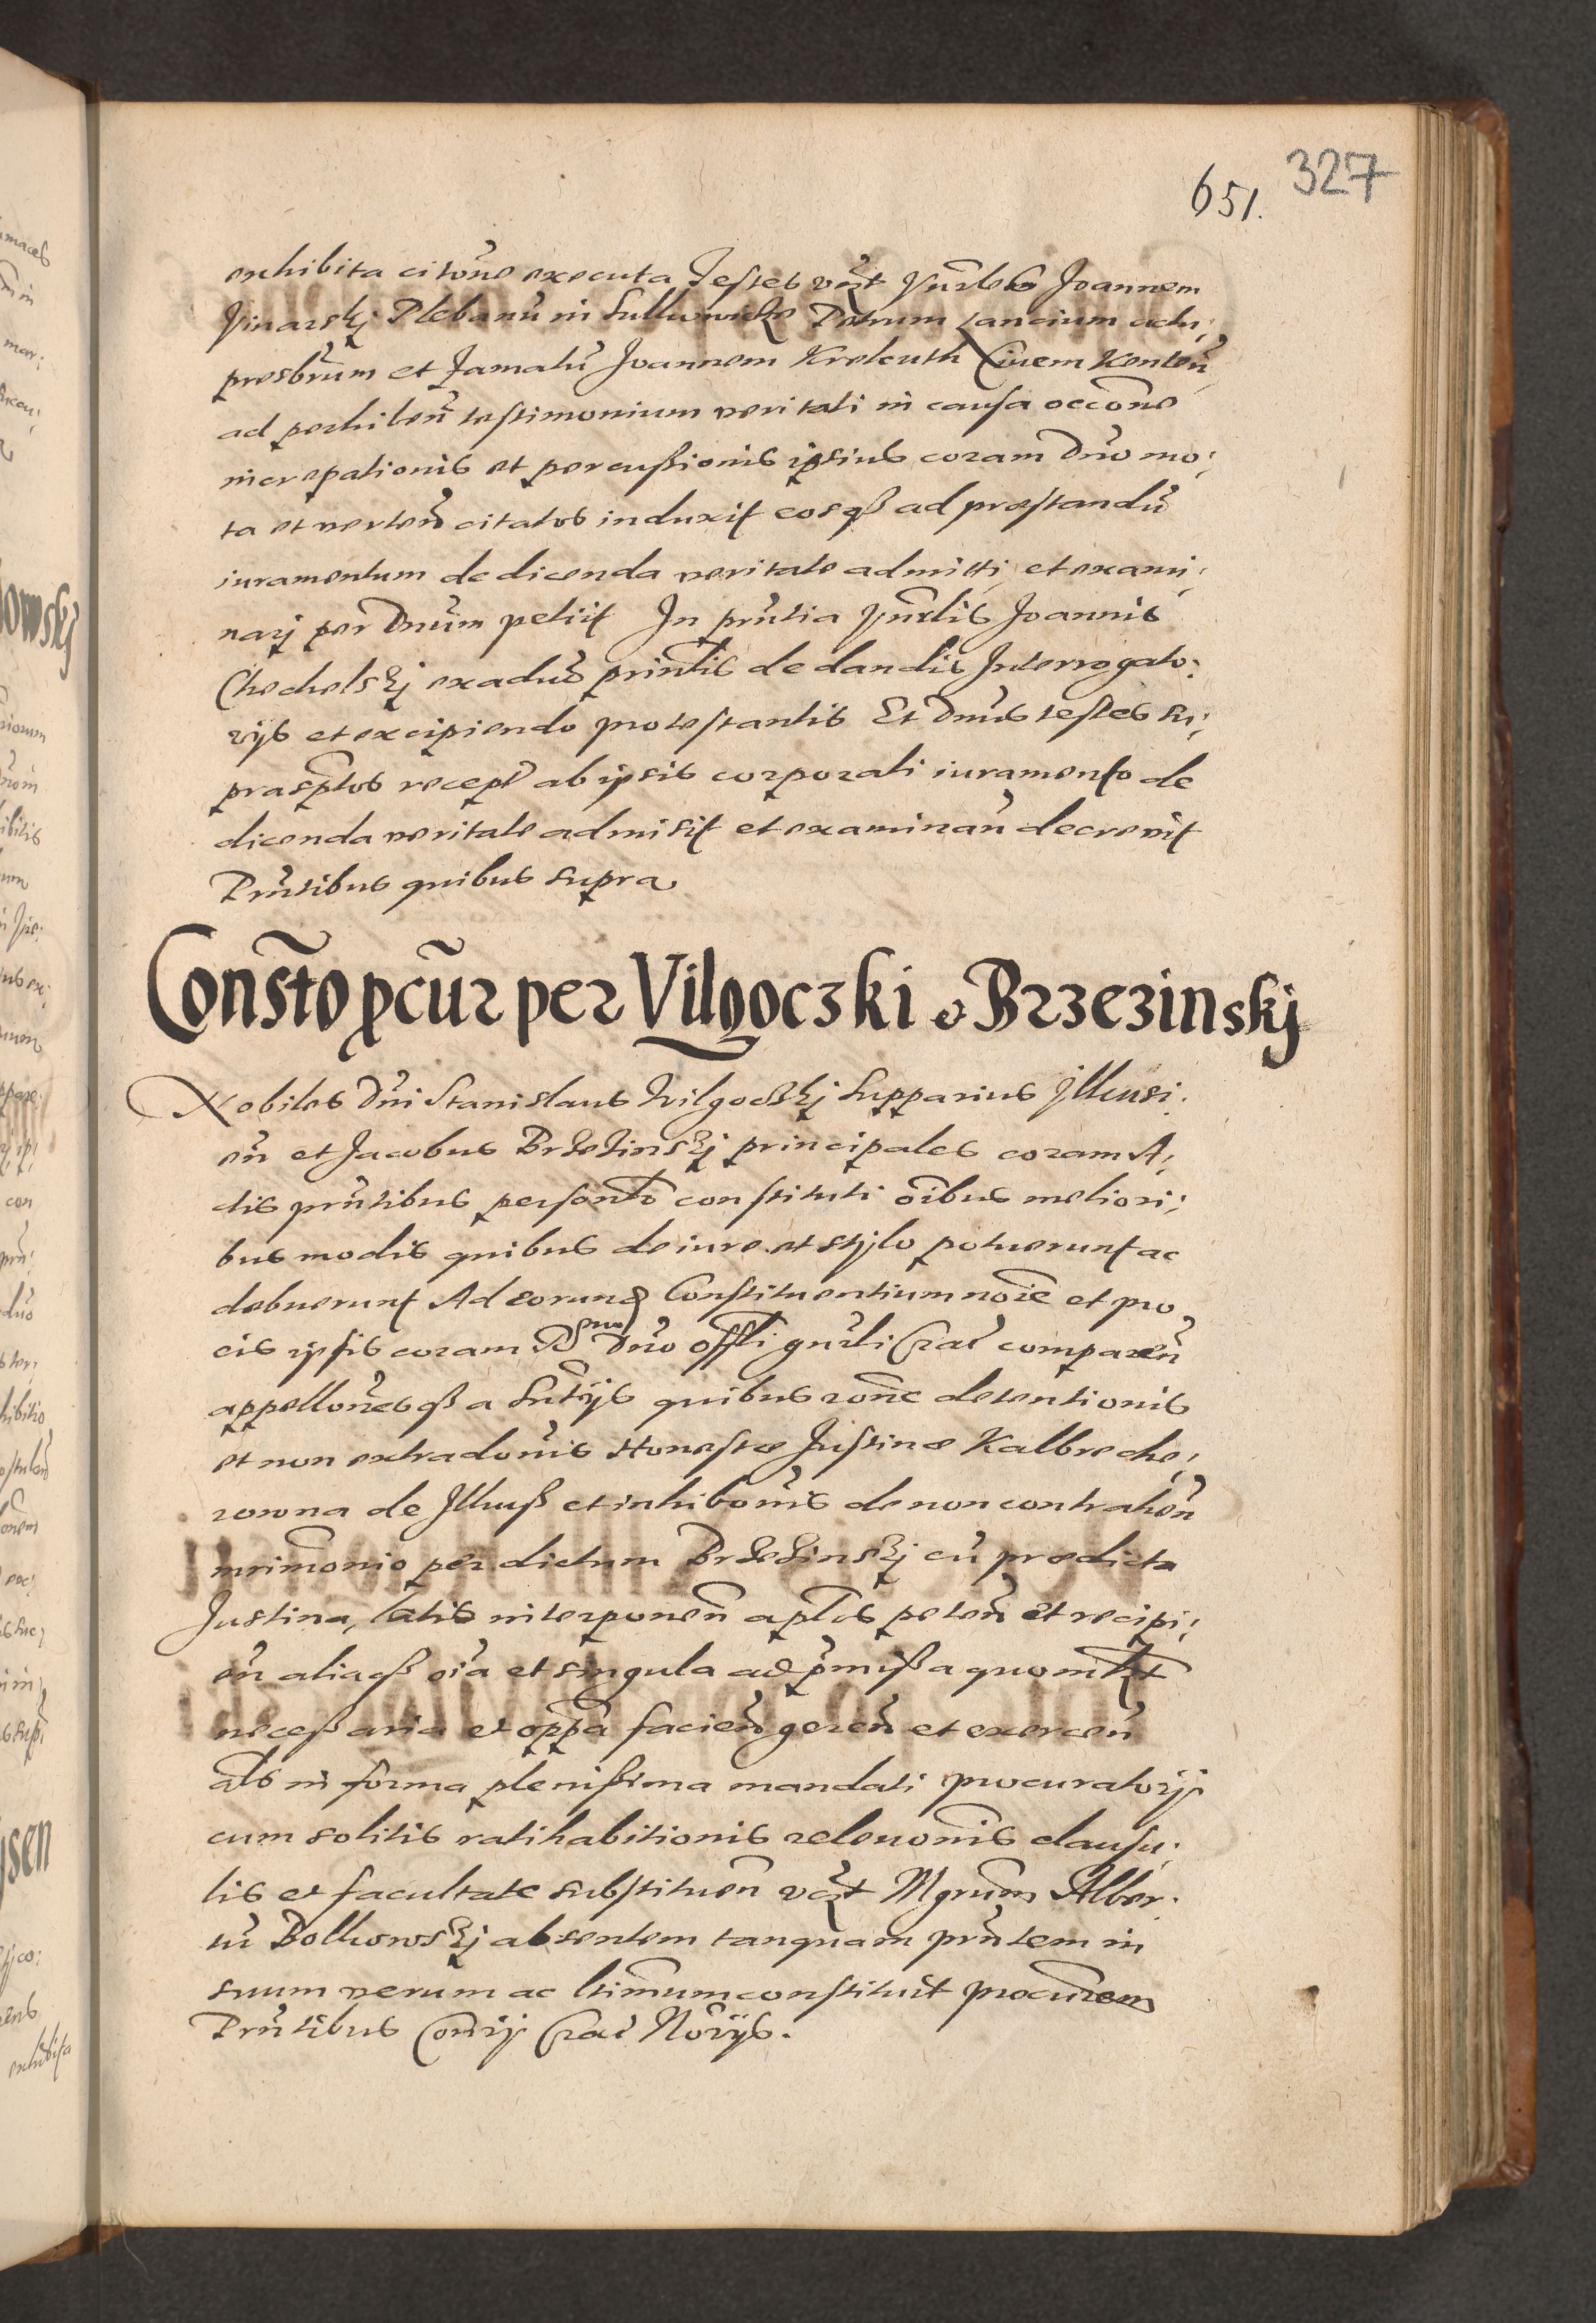 327
651.
exhibita citõne executa Testes vẑt Vn̄rlem Joannem
Vinarskj Plebanũ in Sulkowicze Petrum Lancium actu:
presbr̃um et Famatũ Joannem Krelcuth Ciuem Kenteñ
ad perhibeñ testimonium veritati in causa occõne
increpationis et percußionis ipsius coram Dño mo:
ta et verteñ citatos induxit eosqß ad præstandũ
iuramentum de dicenda veritate admitti et exami:
narj per Dñum petiit In pñtia Vn̄rlis Joannis
Chechelskj ex aduõ prinĩlis de dandis Interrogato:
rijs et excipiendo protestantis Et Dñus testes su:
prasc̃ptos recept̃ ab ipsis corporali iuramento de
dicenda veritate admisit et examinañ decrevit
Pñtibus quibus supra
Consĩto p̱cũr per Vilgoczki & Brzezinskj
Nobiles Dñi Stanislaus Wilgoczkj Supparius Illkusi:
eñ et Jacobus Brzezinskj principales coram A:
ctis pñtibus personlr̃ constituti oĩbus meliori:
bus modis quibus de iure et stÿlo potuerunt ac
debuerunt Ad eorund Constituentium noĩe et pro
eis ipsis coram Rsmo Dño offli gñrli Crac̃ compareñ
appellõnesqß a Sñtijs quibus rõne detentionis
et non extradõnis Honestæ Justinæ Kalbreche:
rowna de Jllkuß et inhibõnis de non contraheñ
mrimonio per dictum Brzezinskj cũ prædicta
Justina, latis interponeñ apl̃os peteñ et recipi:
eñ aliaqß oĩa et singula ad p̃mißa quomlẑt
neceßaria et opp̃a facieñ gereñ et exerceñ
al̃s in forma plenißima mandati procuratorij
cum solitis ratihabitionis releuõnis clausu:
lis et facultate substitueñ vẑt Mgrum̃ Alber:
tũ Bolkowskj absentem tanquam pñtem in
suum verum ac ltimum̃ constituit procur̃em
Pñtibus Coñrij Crac̃ Notr̃ijs.